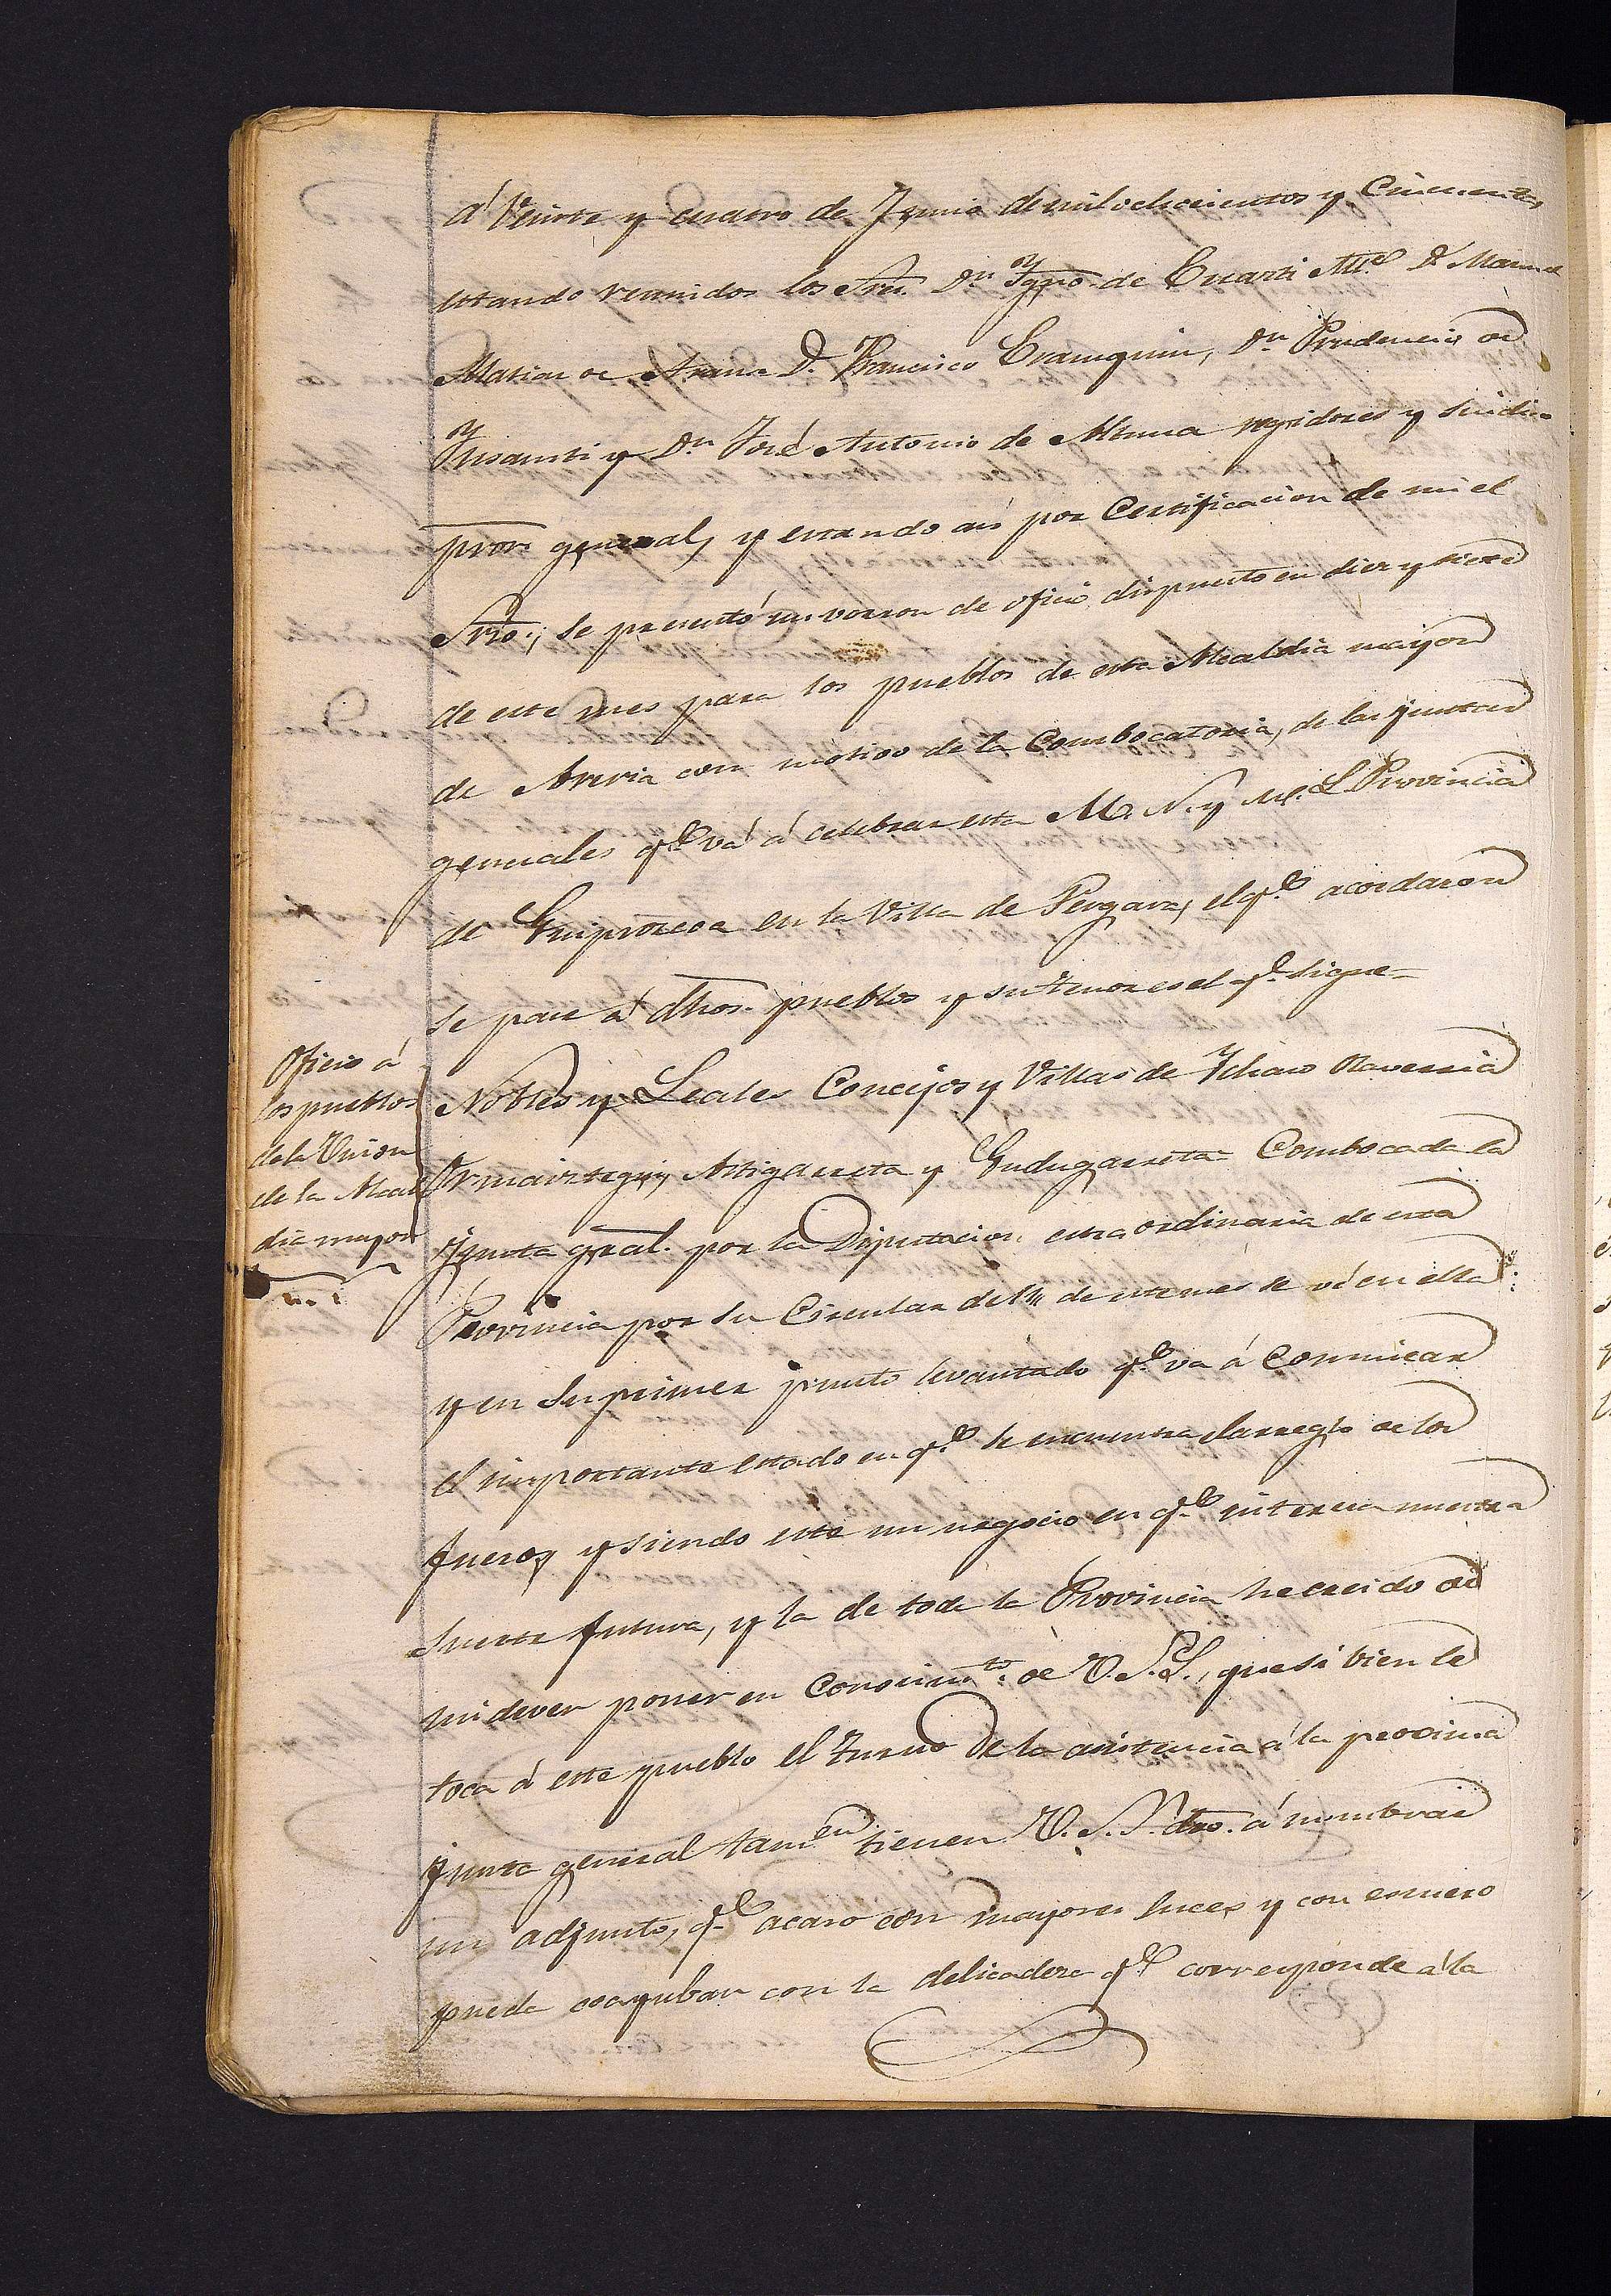 á Veinte y cuatro de Junio de mil ochocientos y Cincuenta
estando reunidos los Sres. Dn Ygno. de Al.e D. Manuel
Matias de Arana D. Francisco Dn Prudencio de
Ynsausti y Dn José Antonio de regidores y sindico
pror. general, y estando asi por Certificacion de mi el
Srio., se presentó un vorron de oficio dispuesto en diez y siete
de este mes para los pueblos de esta Alcaldia mayor
de Areria con motivo de la Combocatoria, de las juntas
generales qe. vá á celebrar esta M. N. y M. L. Provincia
de Guipozcoa en la Villa de Vergara, el qe. acordaron
se pase á dhos. pueblos y su tenor es el qe. sigue=
Oficio á
los pueblos
de la Union
de la Alcal
dia mayor
Nobles y Leales Concejos y Villas de Ichaso
Ormaiztegui, Astigarreta y Gudugarreta= Combocada la
Junta gral. por la Diputacion extraordinaria de esta
Provincia por su Circular del 14 de este mes se vé en ella
y en su primer punto levantado qe. va á Comunicar
el importante estado en qe. se encuentra el arreglo de los
fueros, y siendo este un negocio en qe. interesa nuestra
Suerte futura, y la de toda la Provincia he creido de
mi dever poner en Conocimto. de V.S.S., que si bien le
toca á este pueblo el turno de la asistencia á la procsima
Junta general tamen. tienen V.S.S. dro. á nombrar
un adjunto, qe. acaso con mayores luces y con esmero
pueda coayubar con la delicadeza qe. corresponde á la